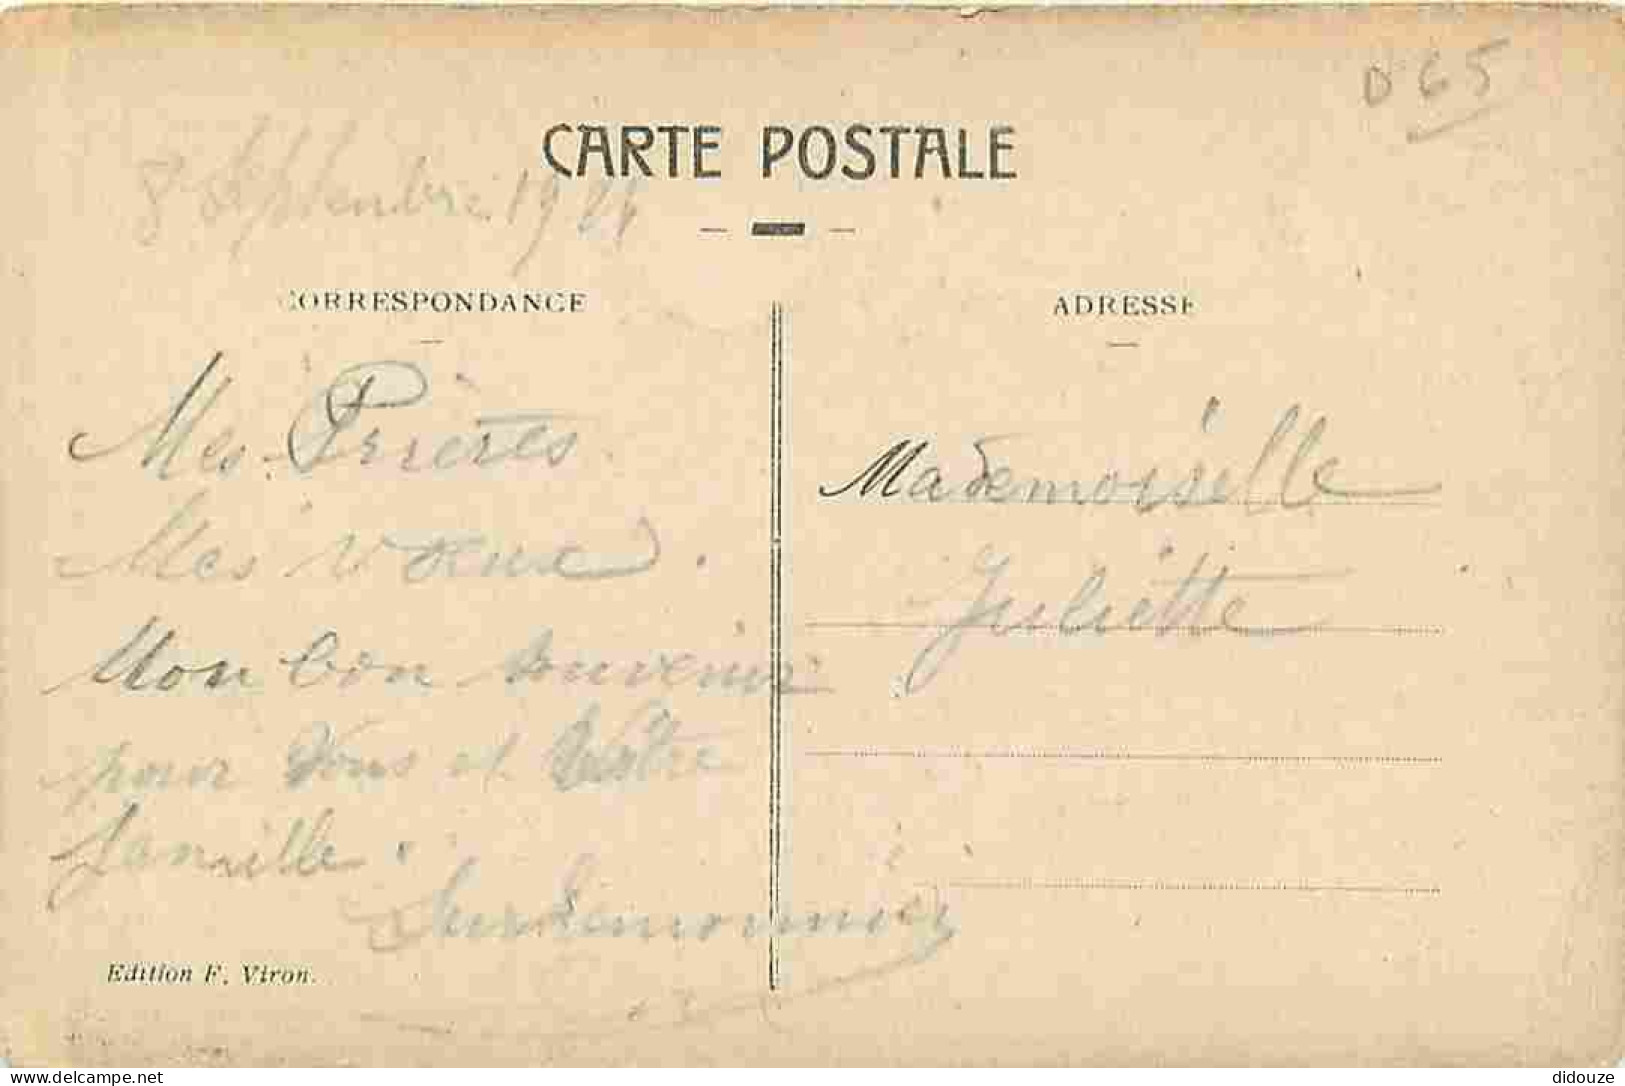 D 65
CARTE POSTALE
8 Septembre 19
CORRESPONDANCE
ADRESSE
Mes Prières.
Mes vœux.
Mon bon souvenir
pour vous et votre
famille.
Mademoiselle
Juliette
Edition F. Viron.
delcampe.net
didouze